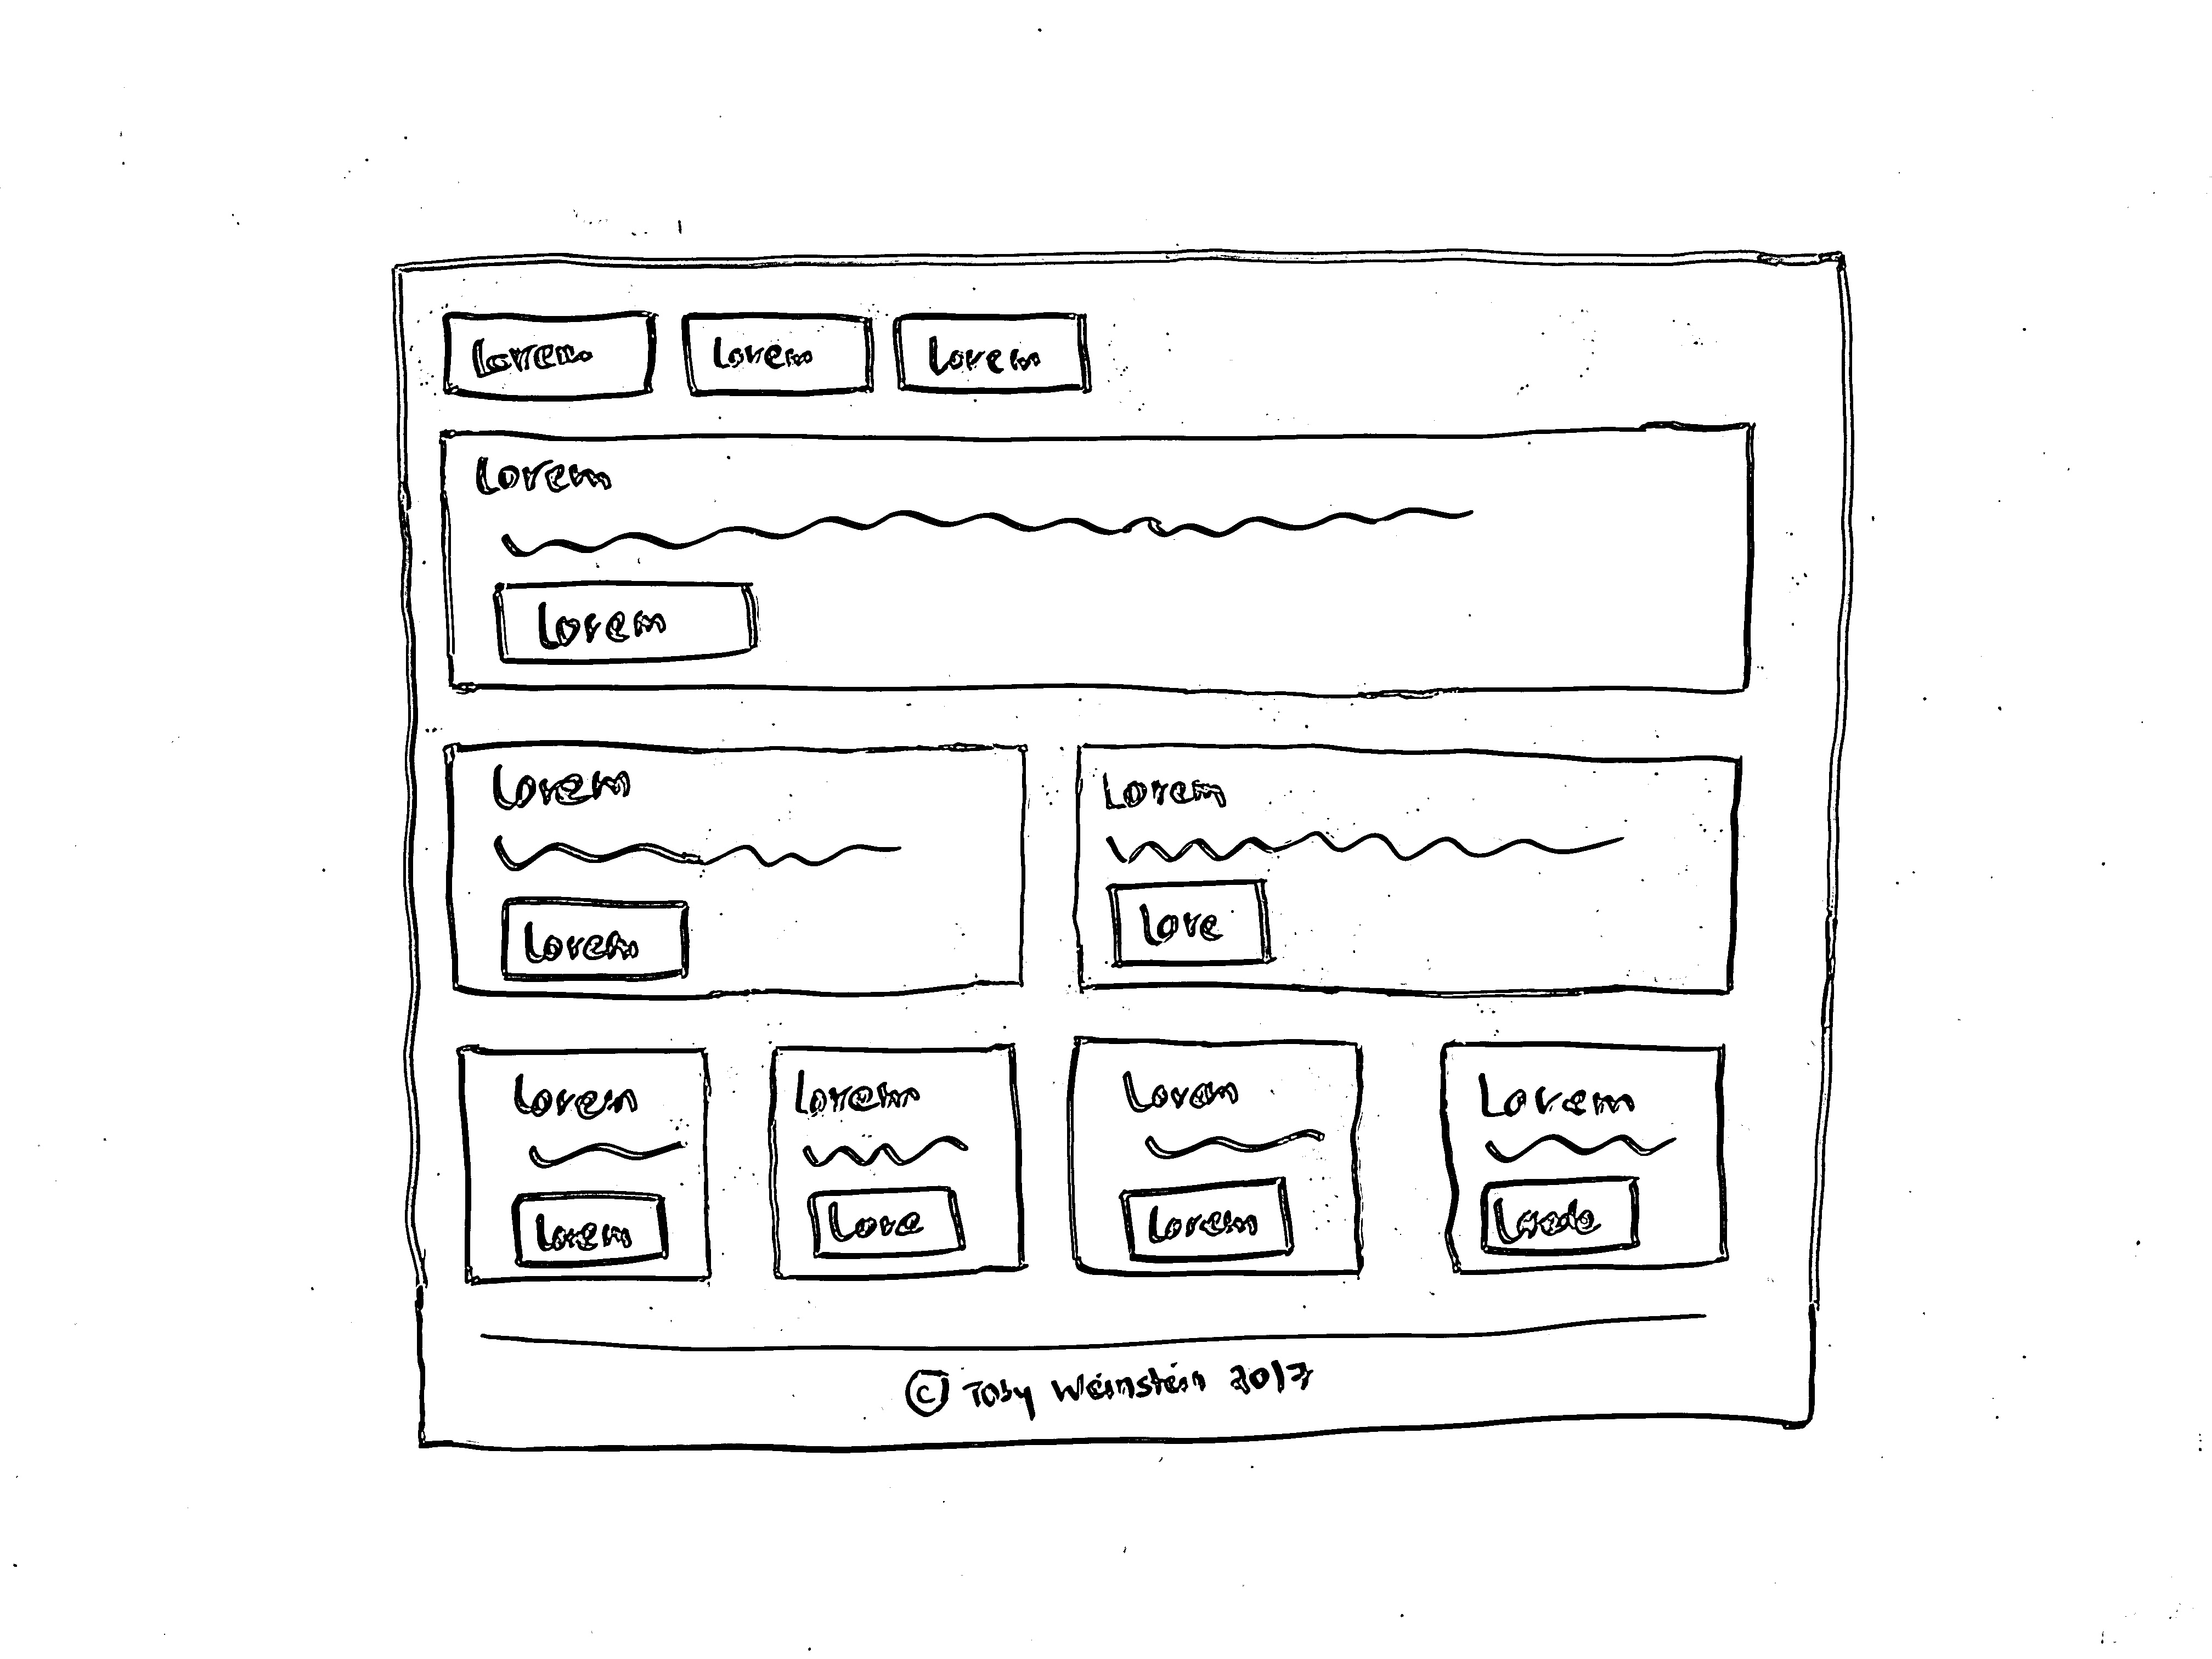 Lorem Lorem Lorem
Lorem
Lorem
Lorem Lorem
Lorem Lore
Lorem Lorem Lorem Lorem
Lorem Love Lorem
© Toby Weinstein 2017